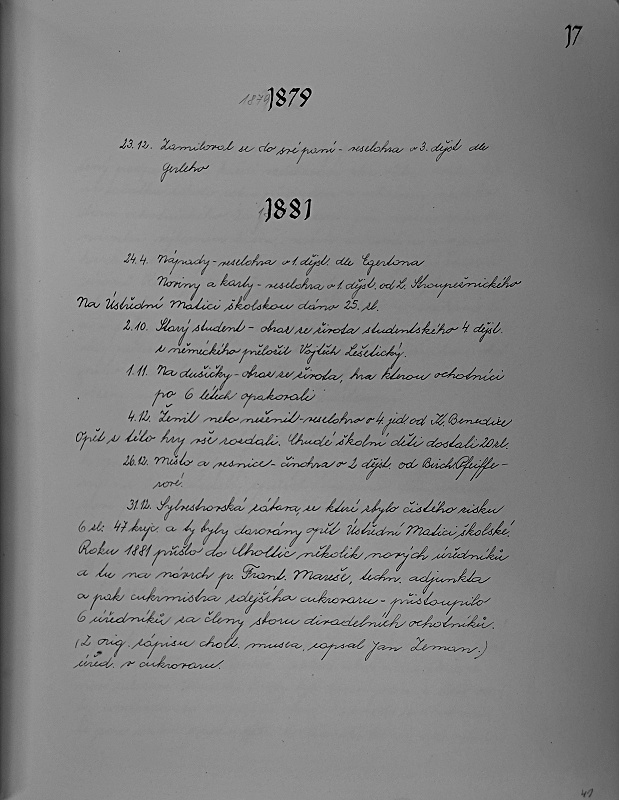 17
1879 1879
23.12. Zamiloval se do své paní - veselohra v 3. dějst. dle
Gerleho
1881
24.4. Nápady - veselohra v 1. dějst. dle Egertona
Noviny a karty - veselohra v 1. dějst. od L. Stroupežnického
Na Ústřední Matici školskou dáno 25. zl.
2.10. Starý student - obraz ze života studentského 4. dějst.
z německého přeložil Vojtěch Lešetický.
1.11. Na dušičky - obraz ze života, hra kterou ochotníci
po 6 letech opakovali
4.12. Ženil nebo neženil - veselohra v 4. jed. od K. Benedixe
Opět z této hry vše rozdali. Chudé školní děti dostali 20 zl.
26.12. Město a vesnice - činohra v 2 dějst. od Birch Pfeiffe-
rové.
31.12. Sylvestrovská zábava, ze které zbylo čistého zisku
6 zl. 47 krejc. a ty byly darovány opět Ústřední Matici školské.
Roku 1881 přišlo do Choltic několik nových úředníků
a tu na návrh p. Frant. Mareše, techn. adjunkta
a pak cukrmistra zdejšího cukrovaru - přistoupilo
6 úředníků za členy sboru divadelních ochotníků.
(Z orig. zápisu cholt. musea, zapsal Jan Zeman.)
úřed. v cukrovaru.